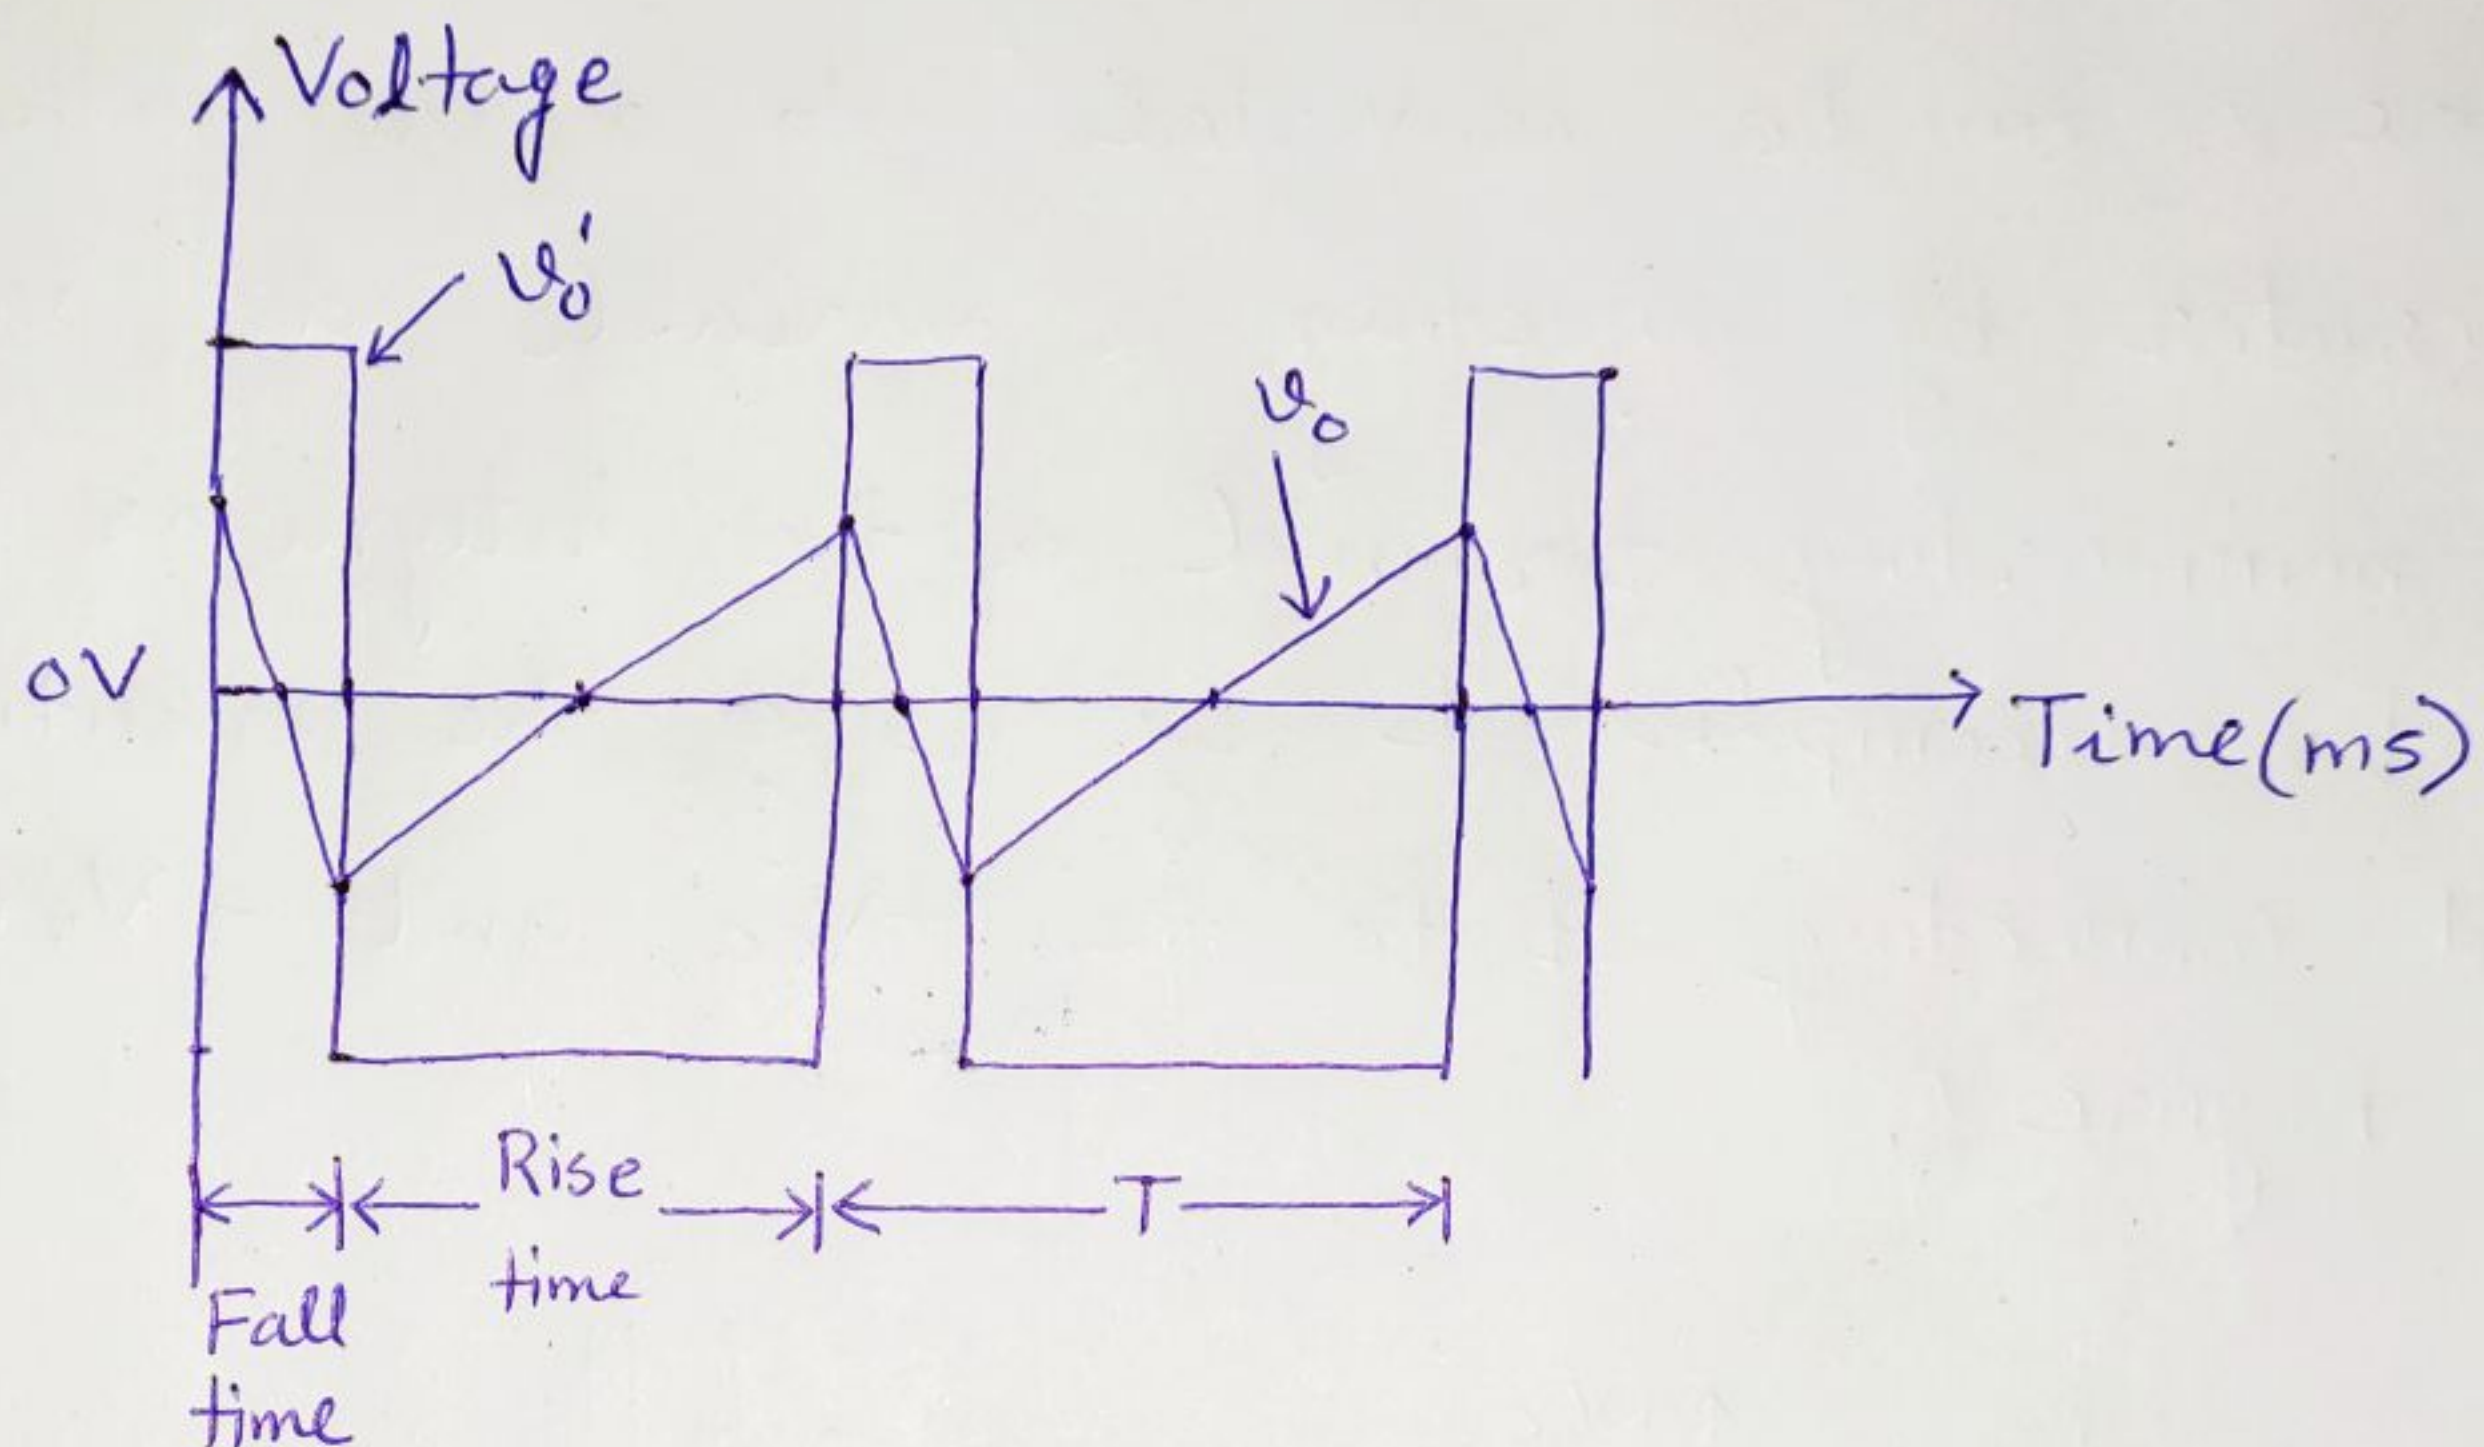 Voltage
v₀'
v₀
0V
Time(ms)
Rise
time
T
Fall
time